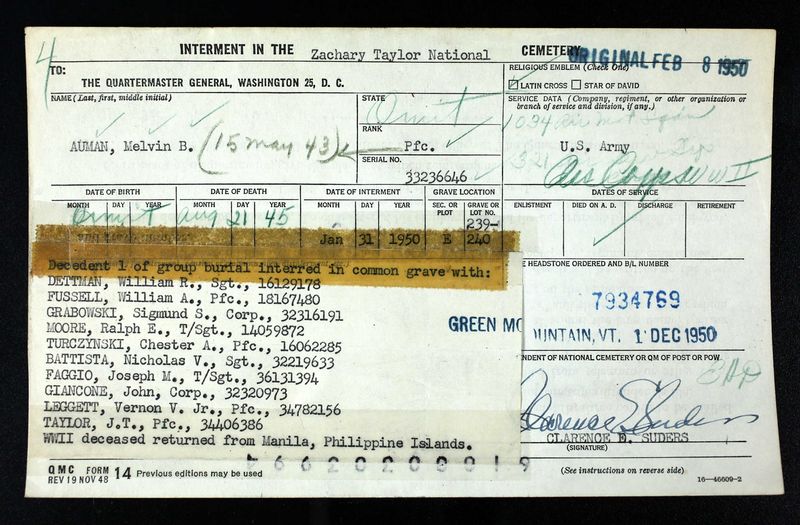 4
INTERMENT IN THE Zachary Taylor National CEMETERY
ORIGINAL FEB 8 1950
TO:
THE QUARTERMASTER GENERAL, WASHINGTON 25, D. C.
RELIGIOUS EMBLEM (Check One)
LATIN CROSS STAR OF DAVID
NAME (Last, first, middle initial)
AUMAN, Melvin B. (15 May 43)
STATE
Omit
RANK
Pfc.
SERIAL NO.
33236646
SERVICE DATA (Company, regiment, or other organization or branch of service and division, if any.)
1034
321
U.S. Army
WW II
DATE OF BIRTH
MONTH DAY YEAR
Omit
DATE OF DEATH
MONTH DAY YEAR
Aug 21 45
DATE OF INTERMENT
MONTH DAY YEAR
Jan 31 1950
GRAVE LOCATION
SEC. OR PLOT
GRAVE OR LOT NO.
239-
E 240
DATES OF SERVICE
ENLISTMENT DIED ON A. D. DISCHARGE RETIREMENT
Decedent 1 of group burial interred in common grave with:
DETTMAN, William R., Sgt., 16129178
FUSSELL, William A., Pfc., 18167480
GRABOWSKI, Sigmund S., Corp., 32316191
MOORE, Ralph E., T/Sgt., 14059872
TURCZYNSKI, Chester A., Pfc., 16062285
BATTISTA, Nicholas V., Sgt., 32219633
FAGGIO, Joseph M., T/Sgt., 36131394
GIANCONE, John, Corp., 32320973
LEGGETT, Vernon V. Jr., Pfc., 34782156
TAYLOR, J.T., Pfc., 34406386
WWII deceased returned from Manila, Philippine Islands.
E HEADSTONE ORDERED AND B/L NUMBER
7934769
GREEN MO UNTAIN, VT. 1 DEC 1950
NDENT OF NATIONAL CEMETERY OR QM OF POST OR POW
Clarence E. Suders
CLARENCE E. SUDERS
(SIGNATURE)
QMC FORM 14 Previous editions may be used
REV 19 NOV 48
(See instructions on reverse side)
16—46609-2